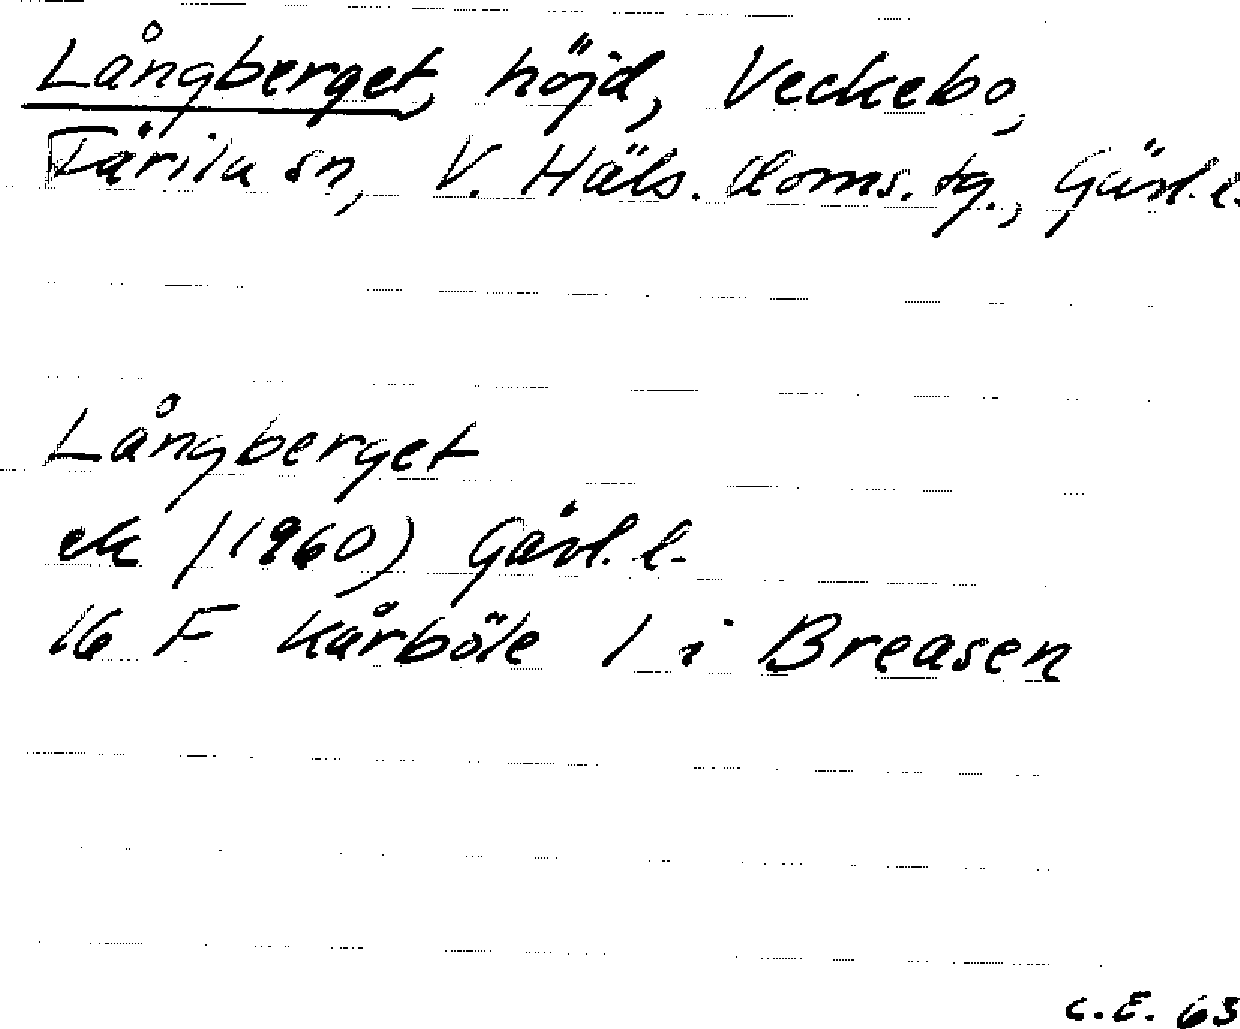 Långberget, höjd, Veckebo,
Färila sn, V. Häls. doms. tg., Gävl. l.
Långberget
ek (1960) Gävl. l.
16 F Kårböle 1 i Breasen
C.E. 63